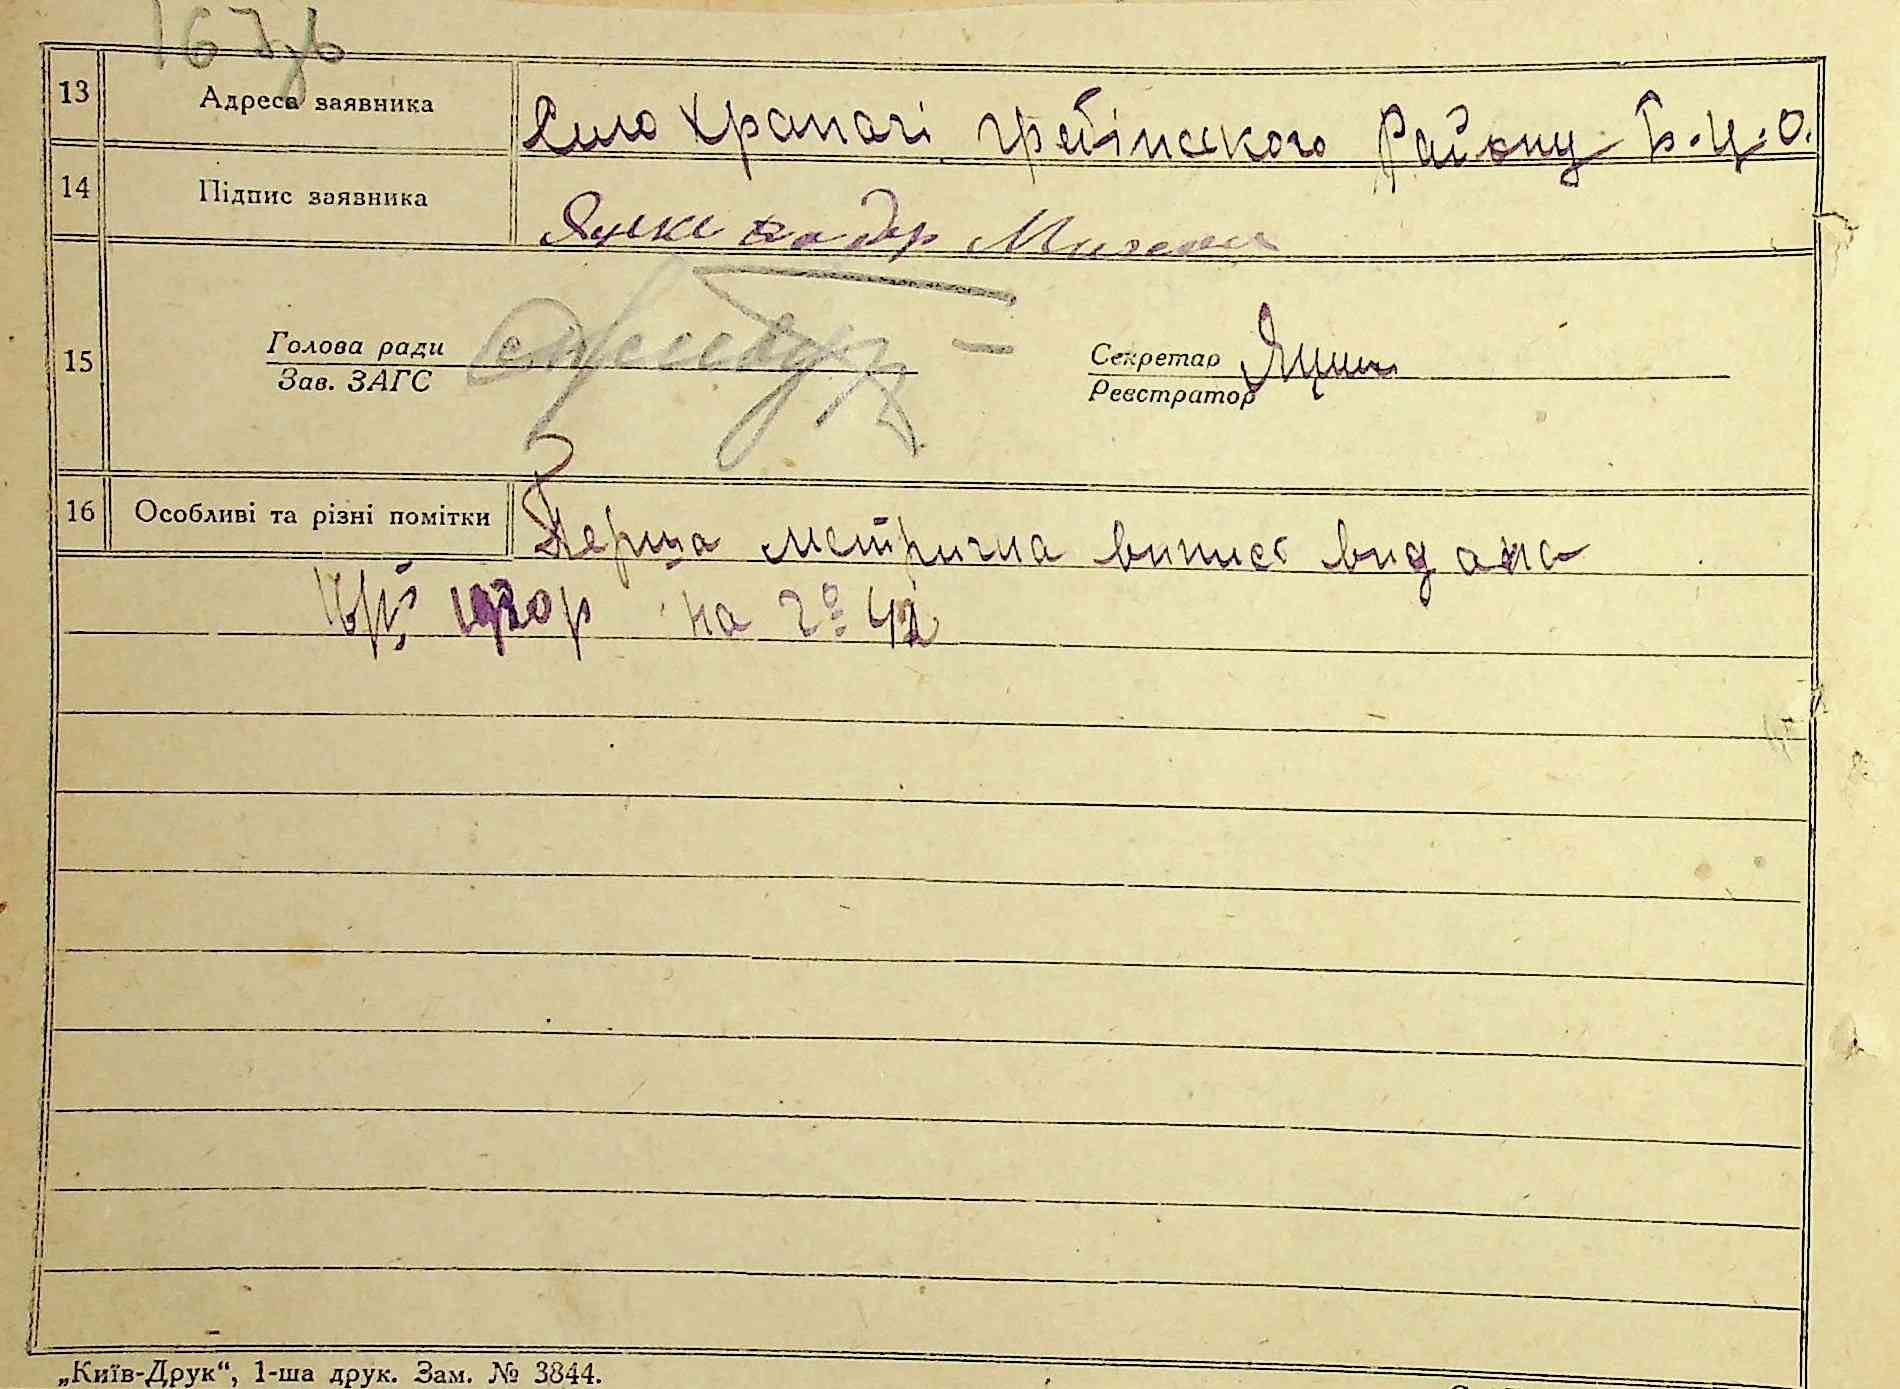 13 Адреса заявника Село Храпачі гребінського Району Б.Ц.О.
14 Підпис заявника
15 Голова ради Секретар Яцик
Зав. ЗАГС Реєстратор
16 Особливі та різні помітки Перша метрична випись видана
на 2º 42
„Київ-Друк“, 1-ша друк. Зам. № 3844.